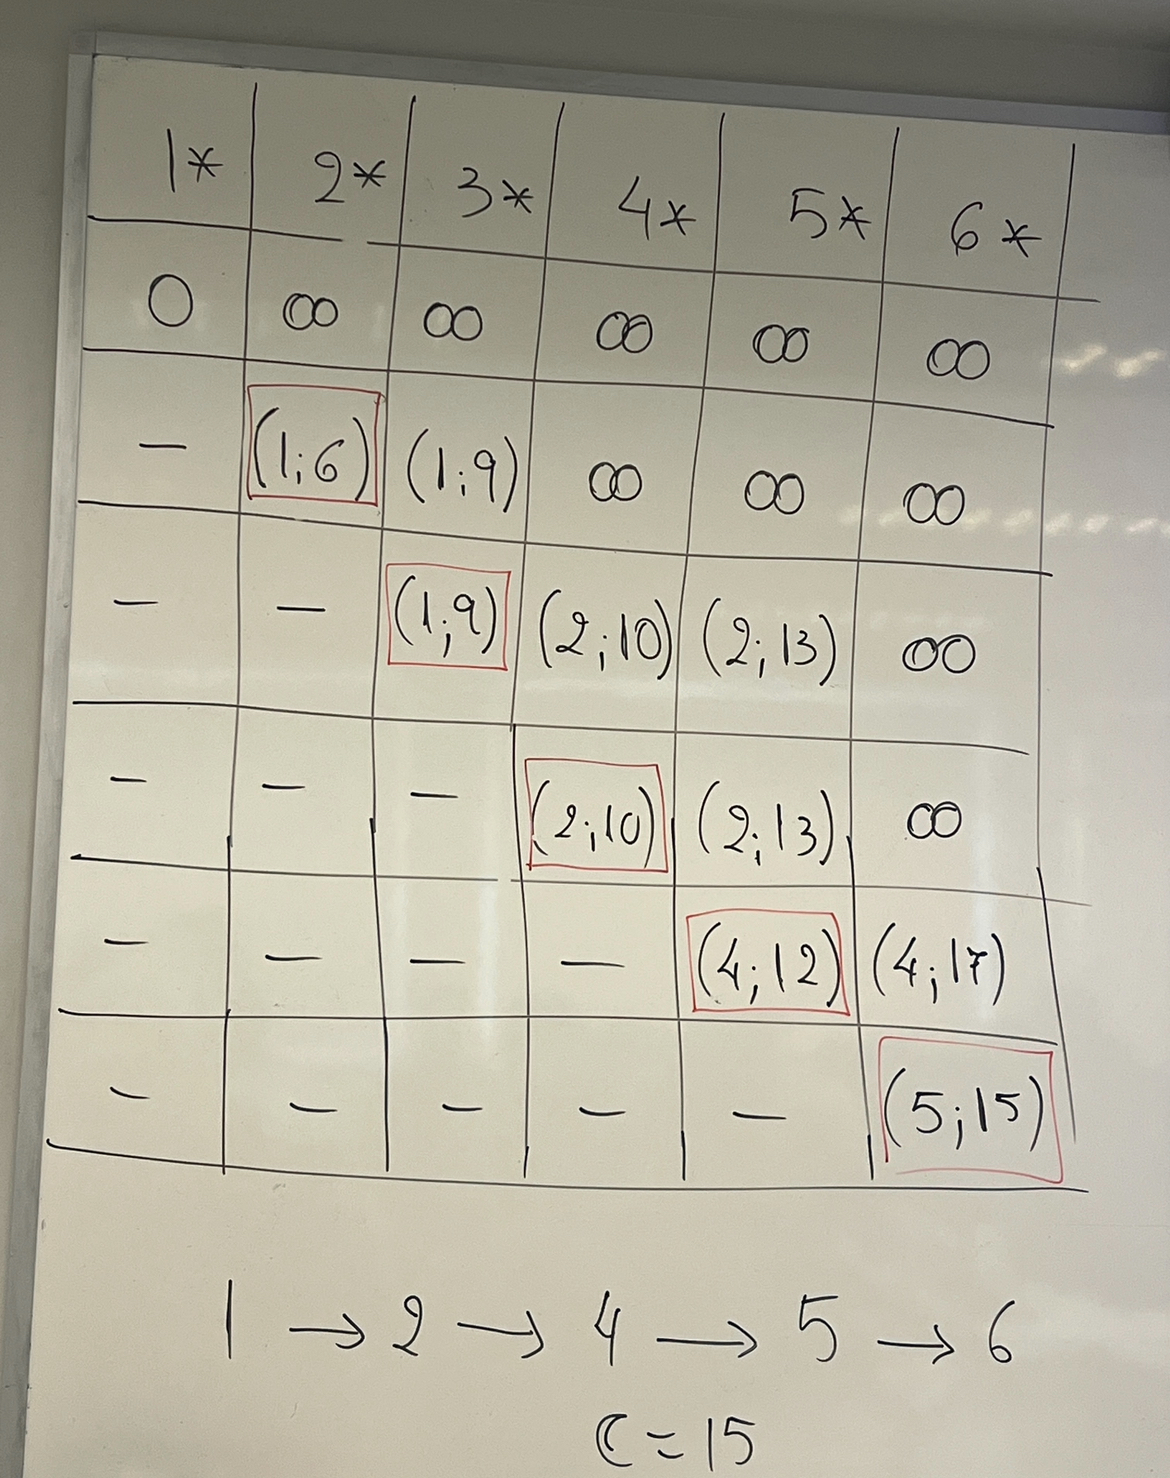 1* 2* 3* 4* 5* 6*
0 ∞ ∞ ∞ ∞ ∞
— (1;6) (1;9) ∞ ∞ ∞
— — (1;9) (2;10) (2;13) ∞
— — — (2;10) (2;13) ∞
— — — — (4;12) (4;17)
— — — — — (5;15)
1 → 2 → 4 → 5 → 6
C = 15